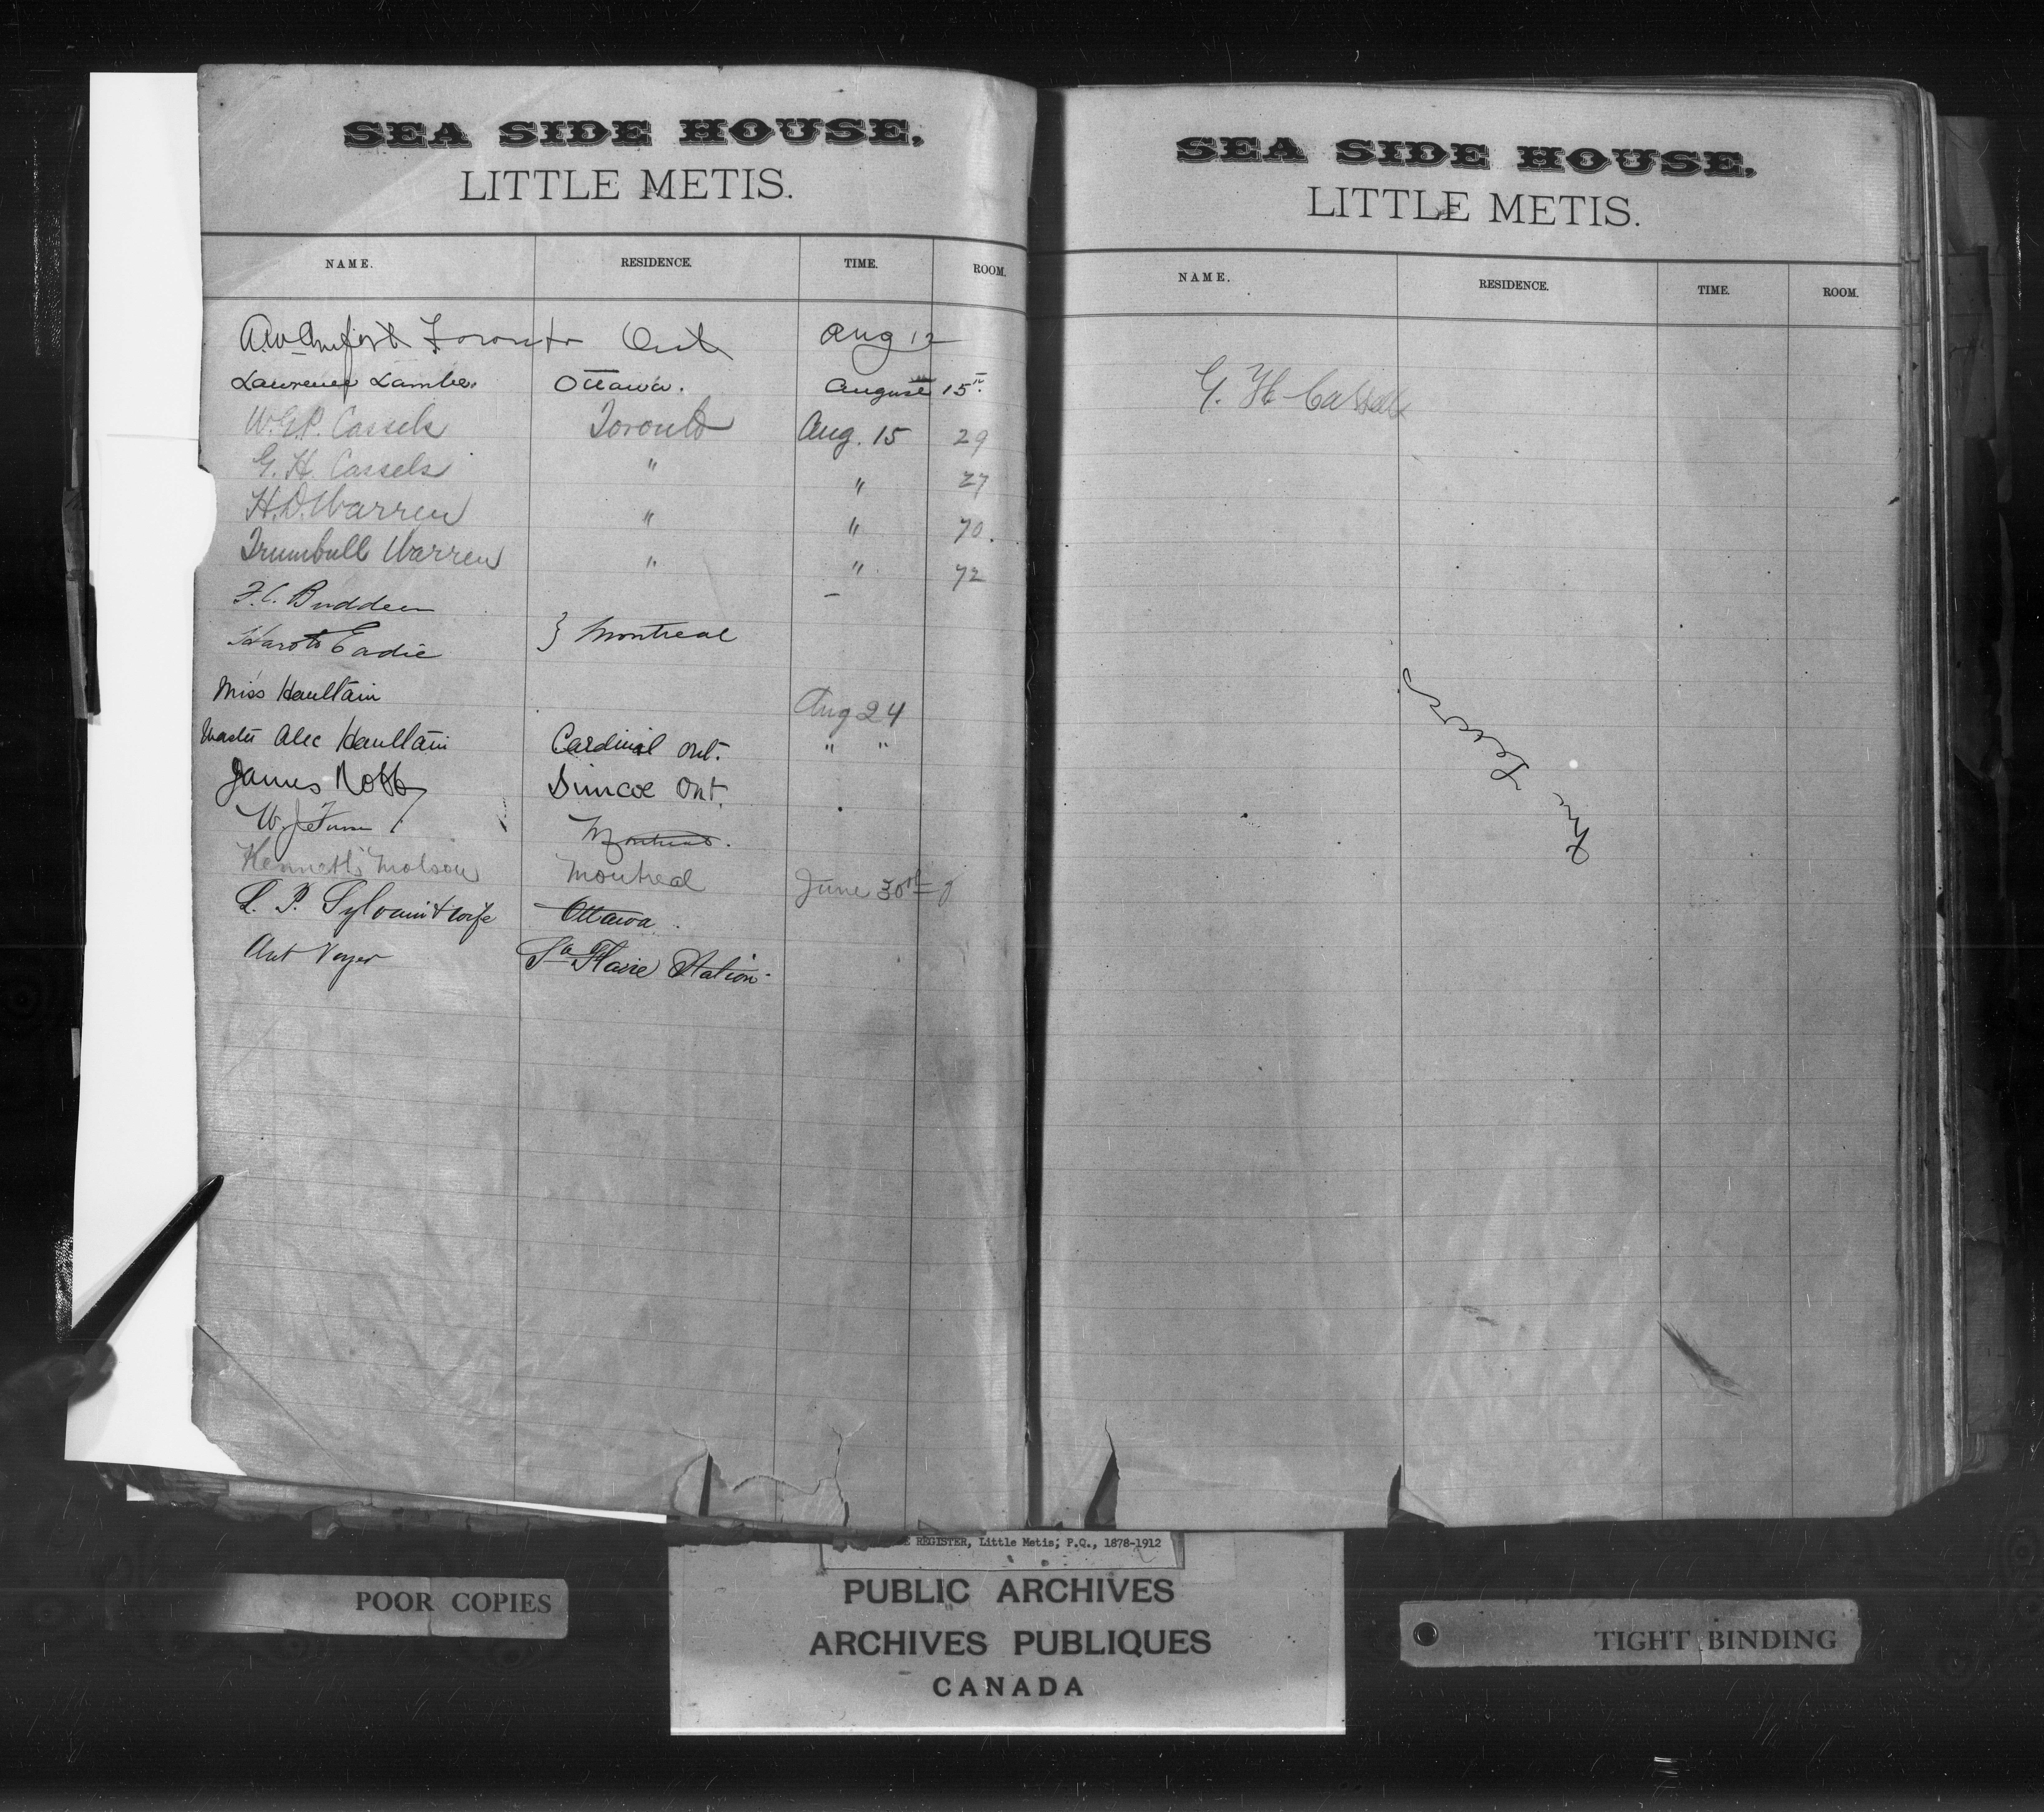 SEA SIDE HOUSE,
LITTLE METIS.
NAME. RESIDENCE. TIME. ROOM.
Toronto Ont Aug 12
Lawrence Lambe. Ottawa. August 15th
W.G.P. Cassels Toronto Aug. 15 29
G. H. Cassels " " 27
H.D. Warren " " 70.
Trumbull Warren " " 72
F.C. Budden
Eadie } Montreal
Miss Haultain Aug 24
Master Alec Haultain Cardinal Ont. " "
James Robb Simcoe Ont.
W. J. Montreal.
Kenneth Molson Montreal June 30th
L. P. Sylvain & wife Ottawa.
Ant Voyer Ste Flavie Station.
SEA SIDE HOUSE,
LITTLE METIS.
NAME. RESIDENCE. TIME. ROOM.
G. H. Cassels
REGISTER, Little Metis; P.Q., 1878-1912
PUBLIC ARCHIVES
ARCHIVES PUBLIQUES
CANADA
POOR COPIES
TIGHT BINDING